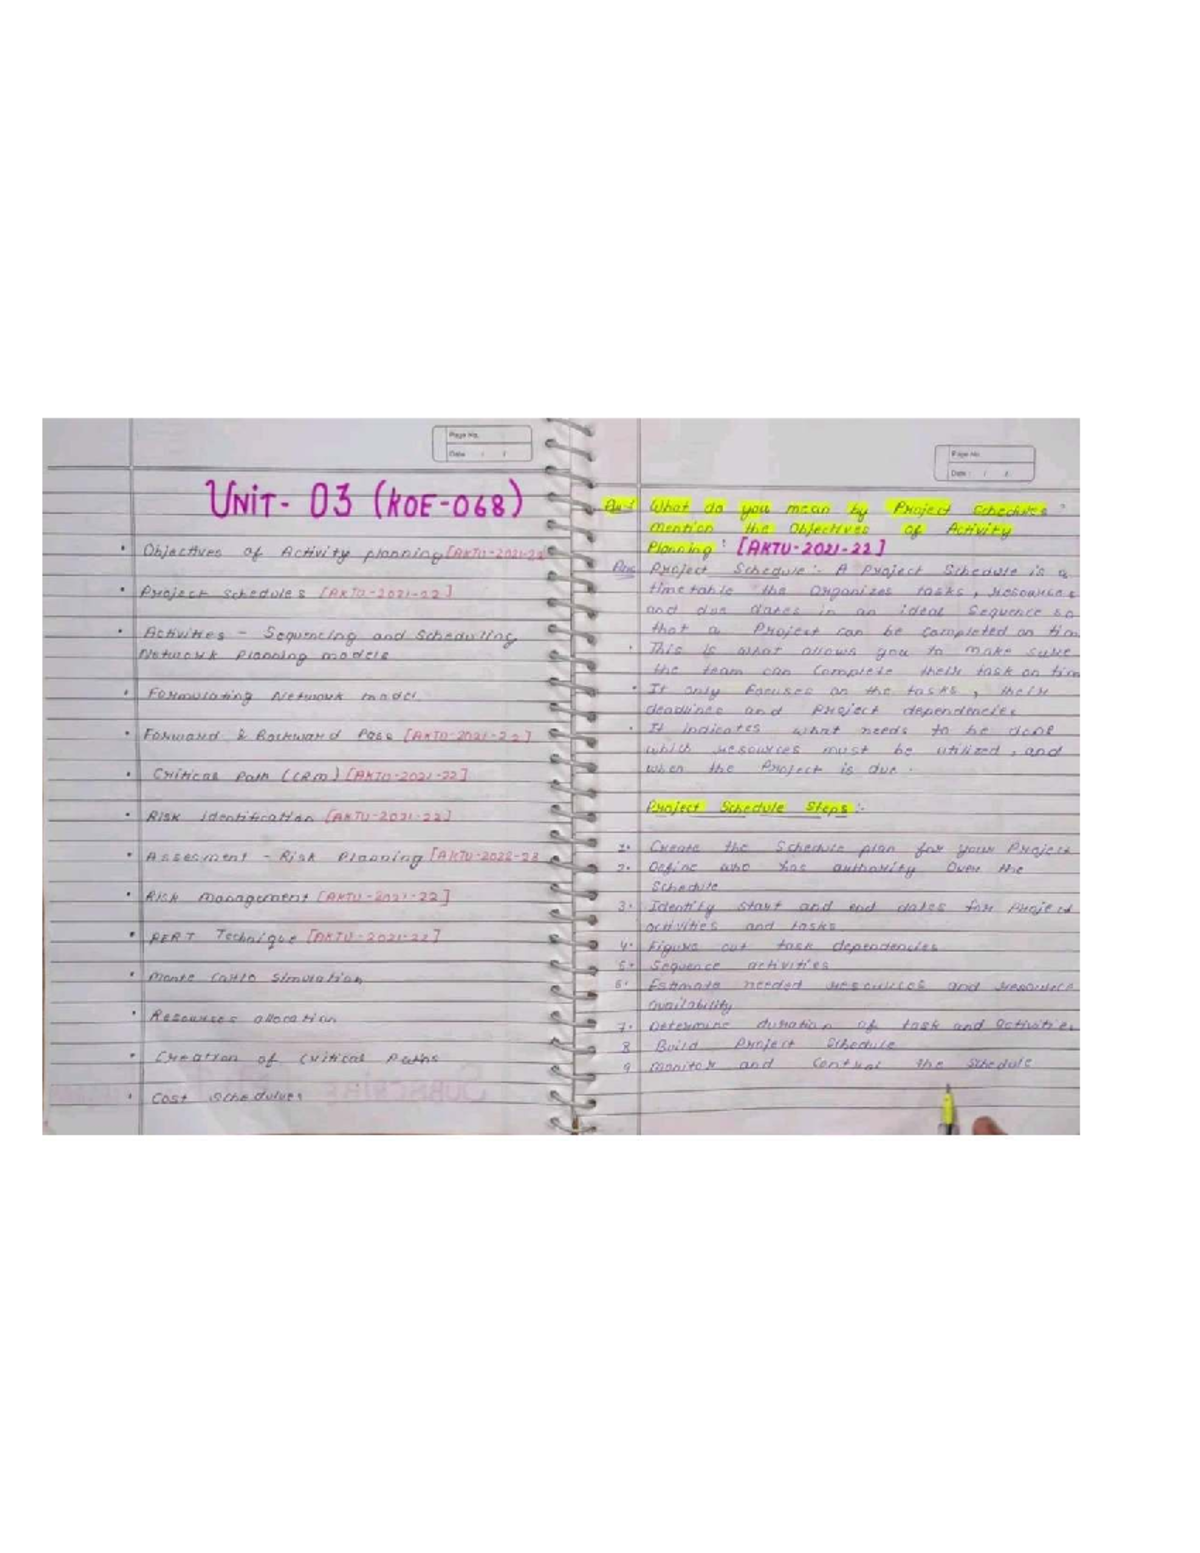 Page No.
Date / /
UNIT- 03 (KOE-068)
• Objectives of Activity planning [AKTU-2021-22
• Project Schedules [AKTU-2021-22]
• Activities - Sequencing and Scheduling,
Network Planning models
• Formulating Network model
• Forward & Backward Pass [AKTU-2021-22]
• Critical Path (CPM) [AKTU-2021-22]
• Risk identification [AKTU-2021-22]
• Assesment - Risk Planning [AKTU-2022-23
• Risk management [AKTU-2021-22]
• PERT Technique [AKTU-2021-22]
• Monte Carlo Simulation
• Resources allocation
• Creation of Critical Paths
• Cost Schedules
Page No.
Date : / /
What do you mean by Project Schedules
mention the Objectives of Activity
Planning : [AKTU-2021-22]
Ans Project Schedule :- A Project Schedule is a
timetable the Organizes tasks, resources
and due dates in an ideal Sequence so
that a Project can be completed on tim
• This is what allows you to make sure
the team can Complete their task on tim
• It only focuses on the tasks, their
deadlines and Project dependencies
• It indicates what needs to be done
which resources must be utilized, and
when the Project is due.
Project Schedule Steps :-
1. Create the Schedule plan for your Project
2. Define who has authority Over the
Schedule
3. Identify start and end dates for Project
activities and tasks
4. Figure out task dependencies
5. Sequence activities
6. Estimate needed resources and resource
availability
7. Determine duration of task and activities
8 Build Project Schedule
9 monitor and Control the Schedule